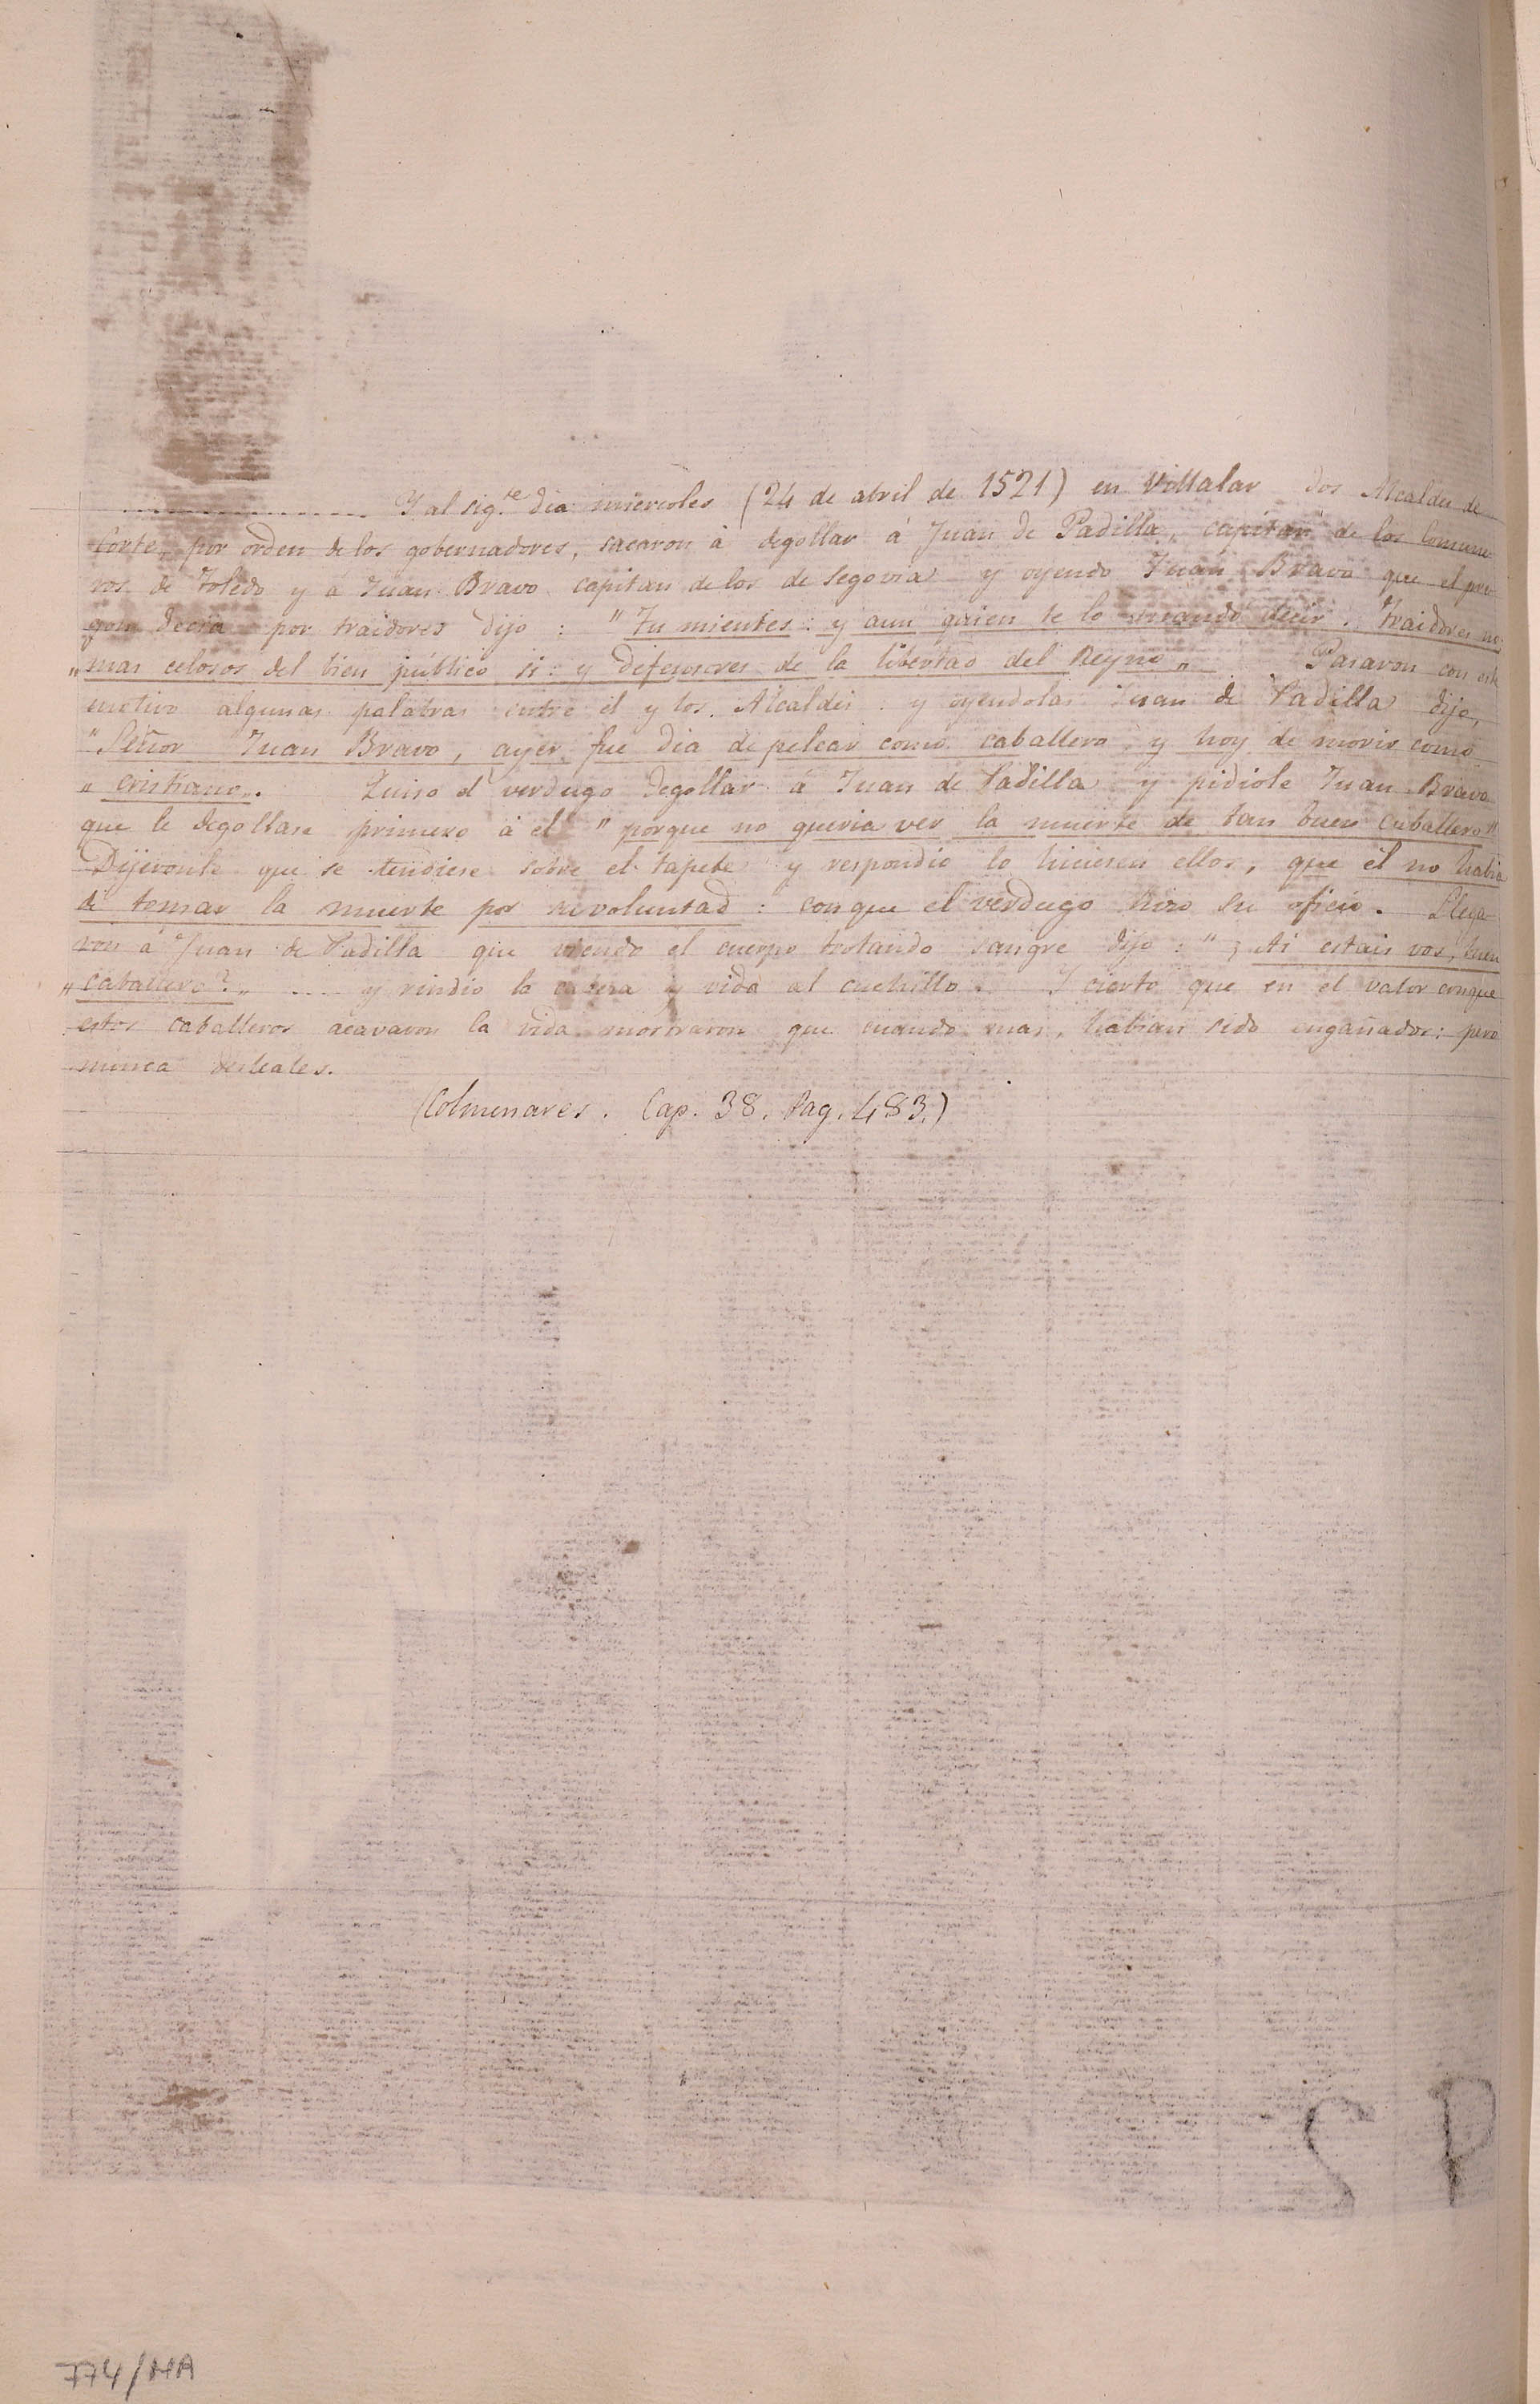 Y al sig.te dia miercoles (24 de abril de 1521) en Villalar dos Alcaldes de
Corte, por orden de los gobernadores, sacaron á degollar á Juan de Padilla, capitan de los Comune-
ros de Toledo y á Juan Bravo capitan de los de Segovia y oyendo Juan Bravo que el pre-
gon decia por traidores dijo : "Tu mientes : y aun quien te lo mandó decir. Traidores no:
"mas celosos del bien público si : y defensores de la libertad del Reyno" Pasaron con este
motivo algunas palabras entre él y los Alcaldes : y oyendolas Juan de Padilla dijo,
"Señor Juan Bravo, ayer fue dia de pelear como caballero y hoy de morir como
" cristiano". Quiso el verdugo degollar á Juan de Padilla y pidiole Juan Bravo
que le degollase primero á el "porque no queria ver la muerte de tan buen caballero"
Dijeronle que se tendiese sobre el tapete y respondió lo hiciesen ellos, que él no habia
de tomar la muerte por su voluntad : con que el verdugo hizo su oficio. Llega-
ron á Juan de Padilla que viendo el cuerpo brotando sangre dijo : "¿ Ai estais vos, buen
" caballero?" .... y rindió la cabeza y vida al cuchillo. Y cierto que en el valor conque
estos caballeros acavaron la vida mostraron que cuando mas, habian sido engañados; pero
nunca desleales.
(Colmenares. Cap. 38. Pag. 483.)
774/HA